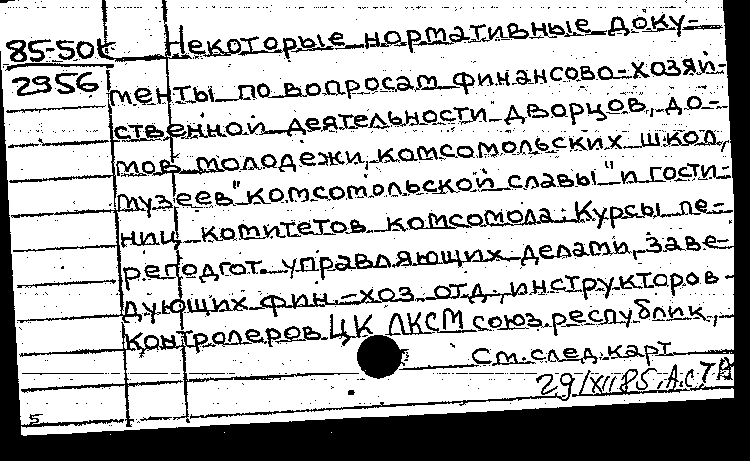 85-50к Некоторые нормативные доку-
2956 менты по вопросам финансово-хозяй-
ственной деятельности дворцов, до-
мов молодежи, комсомольских школ,
музеев "комсомольской славы" и гости-
ниц комитетов комсомола: Курсы пе-
реподгот. управляющих делами, заве-
дующих фин.-хоз. отд., инструкторов-
контролеров ЦК ЛКСМ союз. республик,
См. след. карт.
29/XII85. А.С.
5